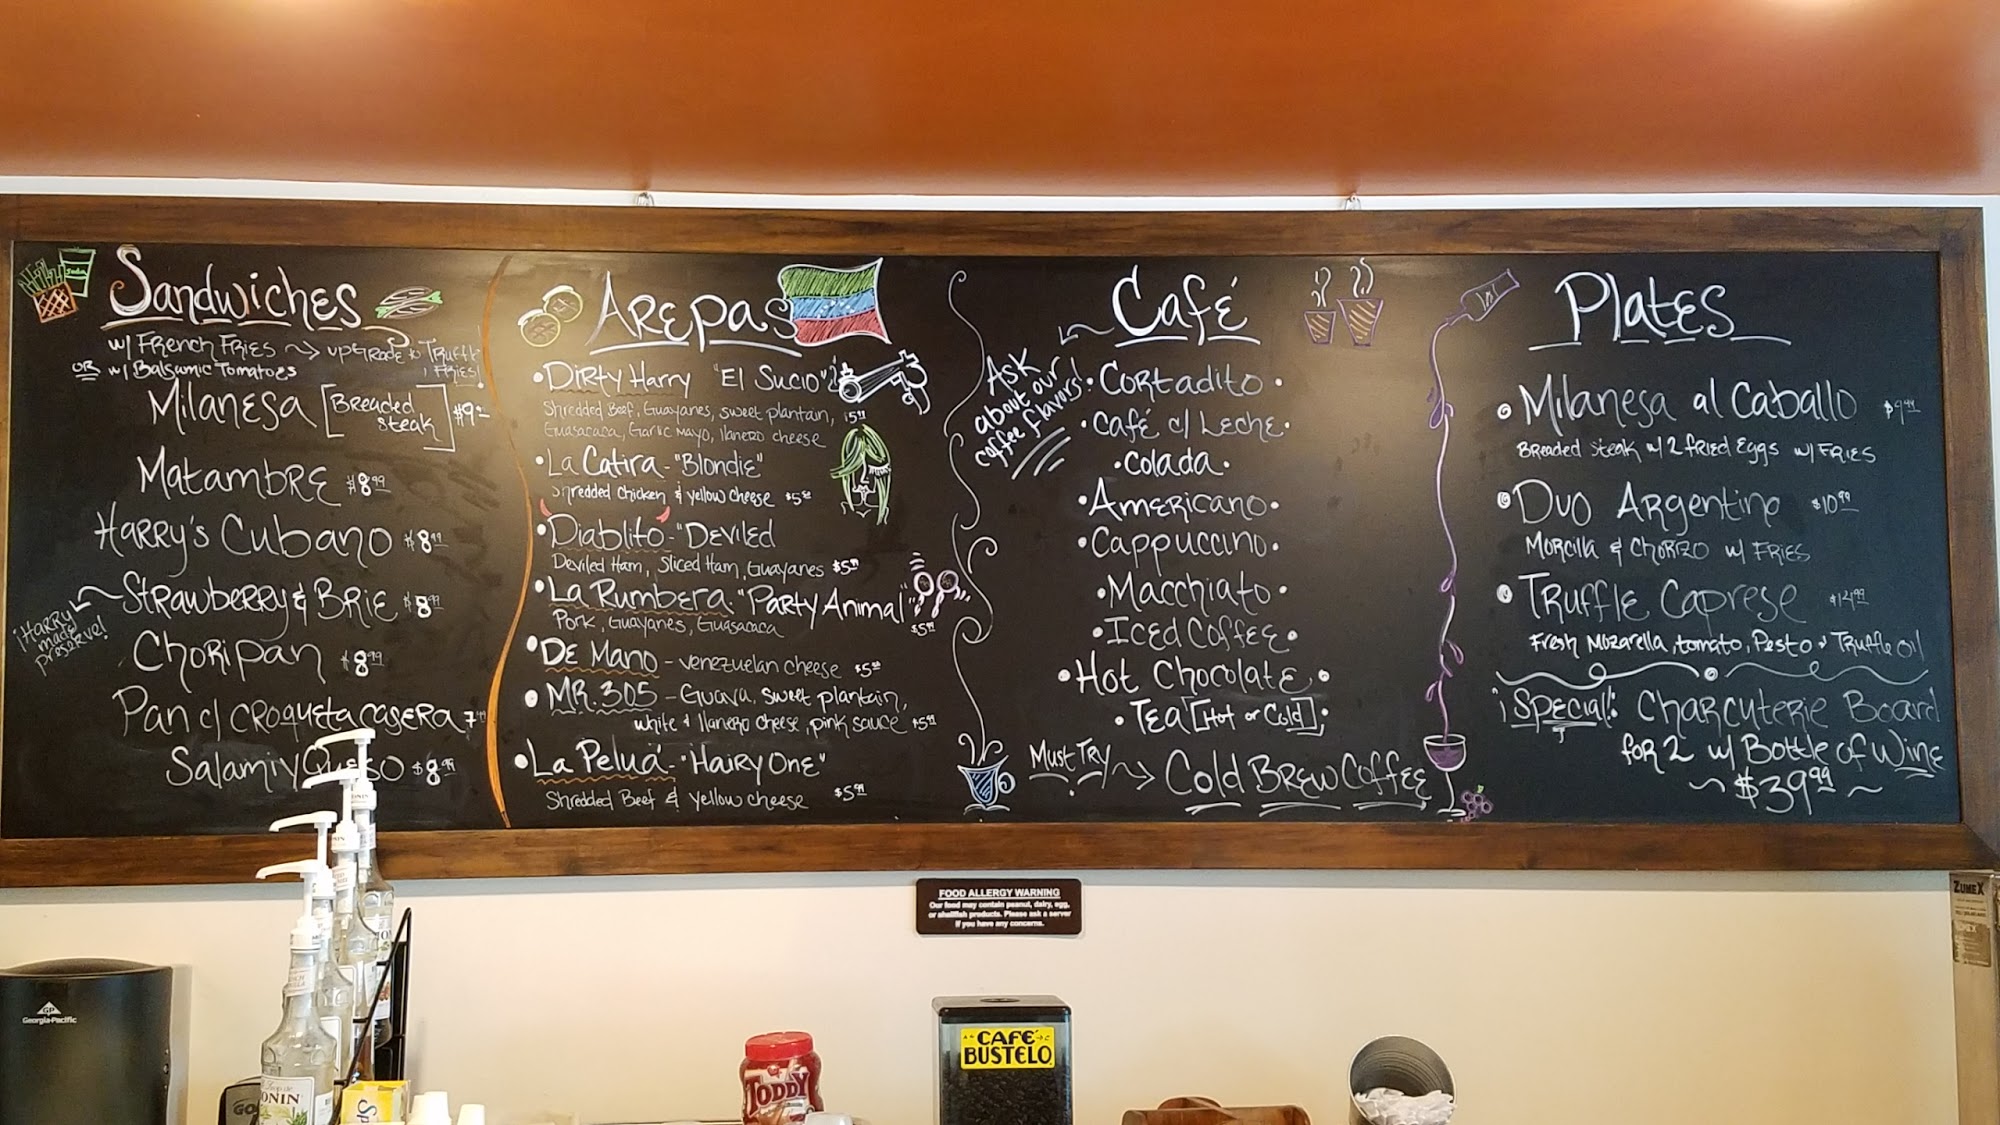 Soda
Sandwiches
w/ French Fries → upgrade to Truffle Fries!
OR w/ Balsamic Tomatoes
Milanesa [Breaded Steak] $9
Matambre $8.99
Harry's Cubano $8.99
Strawberry & Brie $8.99
¡Harry made preserve!
Choripan $8.99
Pan c/ croqueta casera 7.99
Salami y Queso $8.99
Arepas
• Dirty Harry "El Sucio"
Shredded Beef, Guayanes, sweet plantain,
Guasacaca, Garlic Mayo, llanero cheese
• La Catira - "Blondie"
Shredded chicken & yellow cheese $5
• Diablito - "Deviled
Deviled Ham, Sliced Ham, Guayanes $5.99
• La Rumbera - "Party Animal"
Pork, Guayanes, Guasacaca $5.99
• De Mano - venezuelan cheese $5
• MR. 305 - Guava, sweet plantain,
white & llanero cheese, pink sauce $5.99
• La Peluá - "Hairy One"
Shredded Beef & yellow cheese $5.99
Café
Ask about our coffee flavors!
• Cortadito •
• Café c/ Leche •
• Colada •
• Americano •
• Cappuccino •
• Macchiato •
• Iced Coffee •
• Hot Chocolate •
• Tea [Hot or Cold] •
Must Try → Cold Brew Coffee
Plates
• Milanesa al Caballo $9.99
Breaded steak w/ 2 fried Eggs w/ Fries
• Duo Argentino $10.99
Morcilla & Chorizo w/ Fries
• Truffle Caprese $14.99
Fresh Mozarella, tomato, Pesto & Truffle Oil
¡Special!: Charcuterie Board
for 2 w/ Bottle of Wine
~ $39.99 ~
FOOD ALLERGY WARNING
Our food may contain peanut, dairy, egg,
or shellfish products. Please ask a server
if you have any concerns.
ZUMEX
GP
Georgia-Pacific
CAFÉ
BUSTELO
TODDY